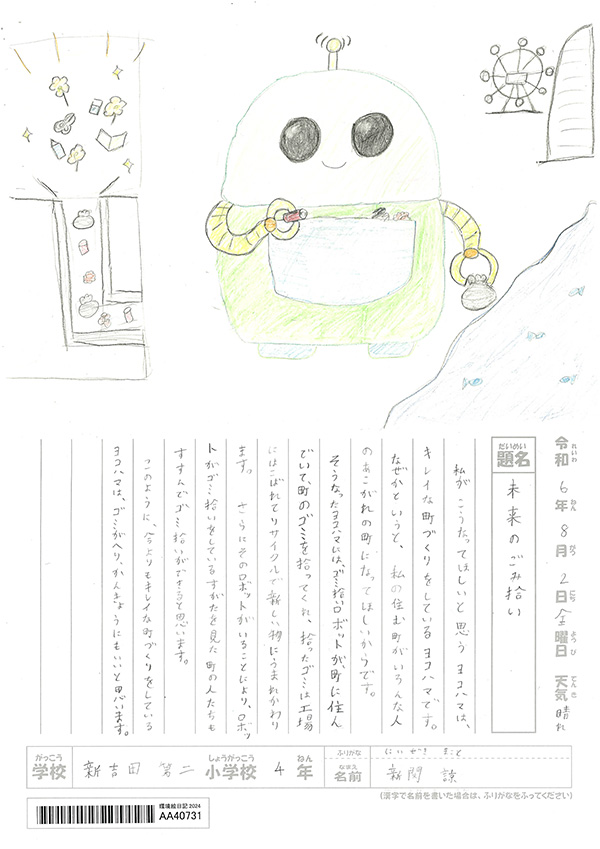 令和6年8月2日金曜日 天気 晴れ
れいわ ねん がつ にち ようび てんき
だいめい
題名 未来のごみ拾い
私がこうなってほしいと思うヨコハマは、
キレイな町づくりをしているヨコハマです。
なぜかというと、私の住む町がいろんな人
のあこがれの町になってほしいからです。
そうなったヨコハマには、ゴミ拾いロボットが、町に住ん
でいて、町のゴミを拾ってくれ、拾ったゴミは工場
にはこばれてリサイクルで新しい物にうまれかわり
ます。 さらにそのロボットがいることにより、ロボッ
トがゴミ拾いをしているすがたを見た町の人たちも
すすんでゴミ拾いができると思います。
このように、今よりもキレイな町づくりをしている
ヨコハマは、ゴミがへり、かんきょうにもいいと思います。
がっこう しょうがっこう ねん ふりがな
学校 新吉田第二 小学校 4年
なまえ
名前 新開 諒
(漢字で名前を書いた場合は、ふりがなをふってください)
環境絵日記2024
AA40731